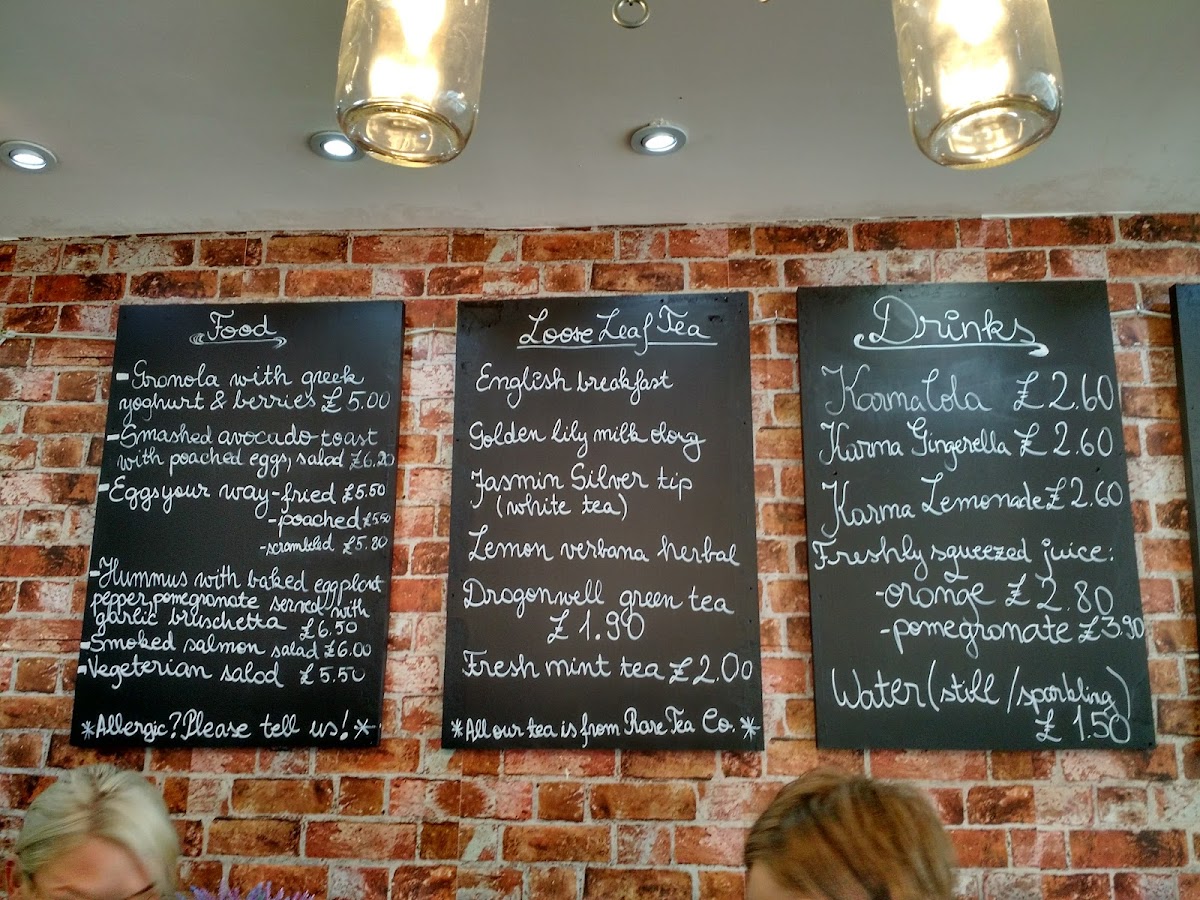 Food
-Granola with greek
yoghurt & berries £5.00
-Smashed avocado toast
with poached eggs, salad £6.20
-Eggs your way -fried £5.50
-poached £5.50
-scrambled £5.80
-Hummus with baked eggplant
pepper, pomegranate served with
garlic bruschetta £6.50
-Smoked salmon salad £6.00
-Vegeterian salad £5.50
*Allergic? Please tell us!*
Loose Leaf Tea
English breakfast
Golden lily milk olong
Jasmin Silver tip
(white tea)
Lemon verbana herbal
Dragonwell green tea
£1.90
Fresh mint tea £2.00
*All our tea is from Rare Tea Co.*
Drinks
Karma Cola £2.60
Karma Gingerella £2.60
Karma Lemonade £2.60
Freshly squeezed juice:
-orange £2.80
-pomegranate £3.90
Water (still/sparkling)
£1.50